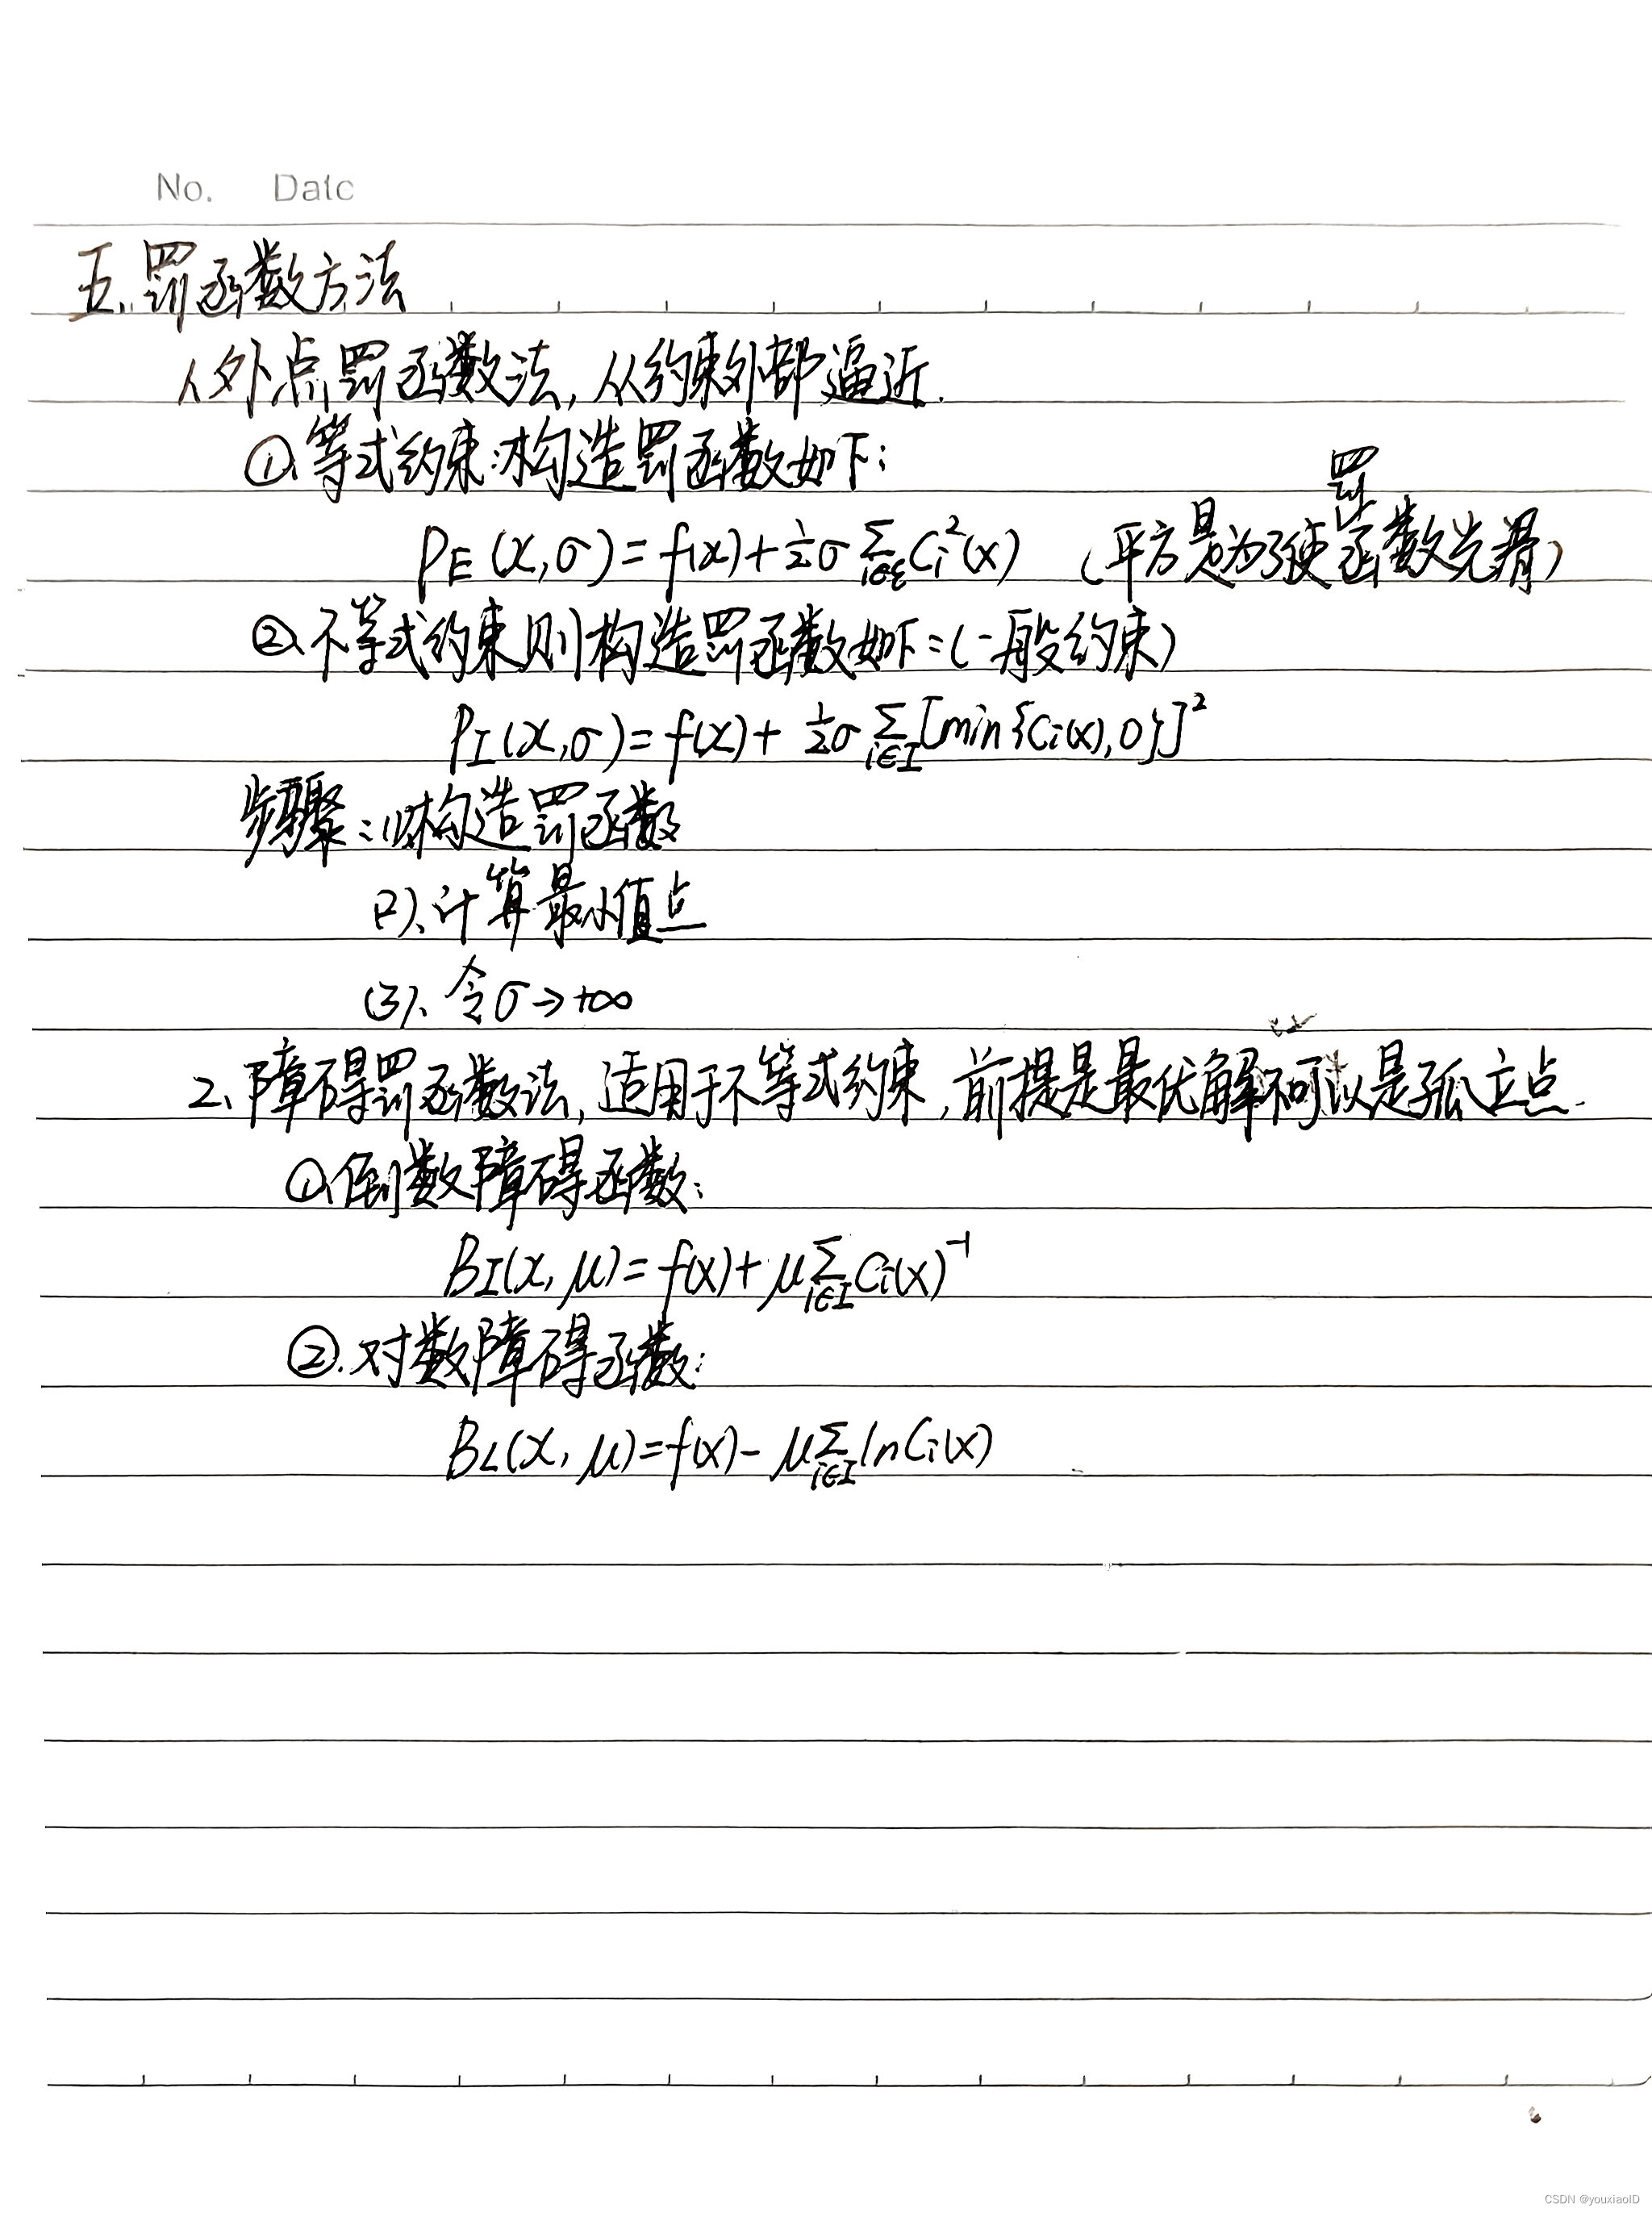 No. Date
五、罚函数方法
1、外点罚函数法, 从约束外部逼近.
①、等式约束:构造罚函数如下:
P_E(x,σ)=f(x)+½σ∑_{i∈ε}C_i²(x) (平方是为了使罚函数光滑)
②、不等式约束则构造罚函数如下:(一般约束)
P_I(x,σ)=f(x)+½σ∑_{i∈I}[min{C_i(x),0}]²
步骤:(1)、构造罚函数
(2)、计算最小值点
(3)、令σ→+∞
2、障碍罚函数法, 适用于不等式约束, 前提是最优解不可以是孤立点.
①、倒数障碍函数:
B_I(x,μ)=f(x)+μ∑_{i∈I}C_i(x)⁻¹
②.对数障碍函数:
B_L(x,μ)=f(x)-μ∑_{i∈I}lnC_i(x)
CSDN @youxiaoID